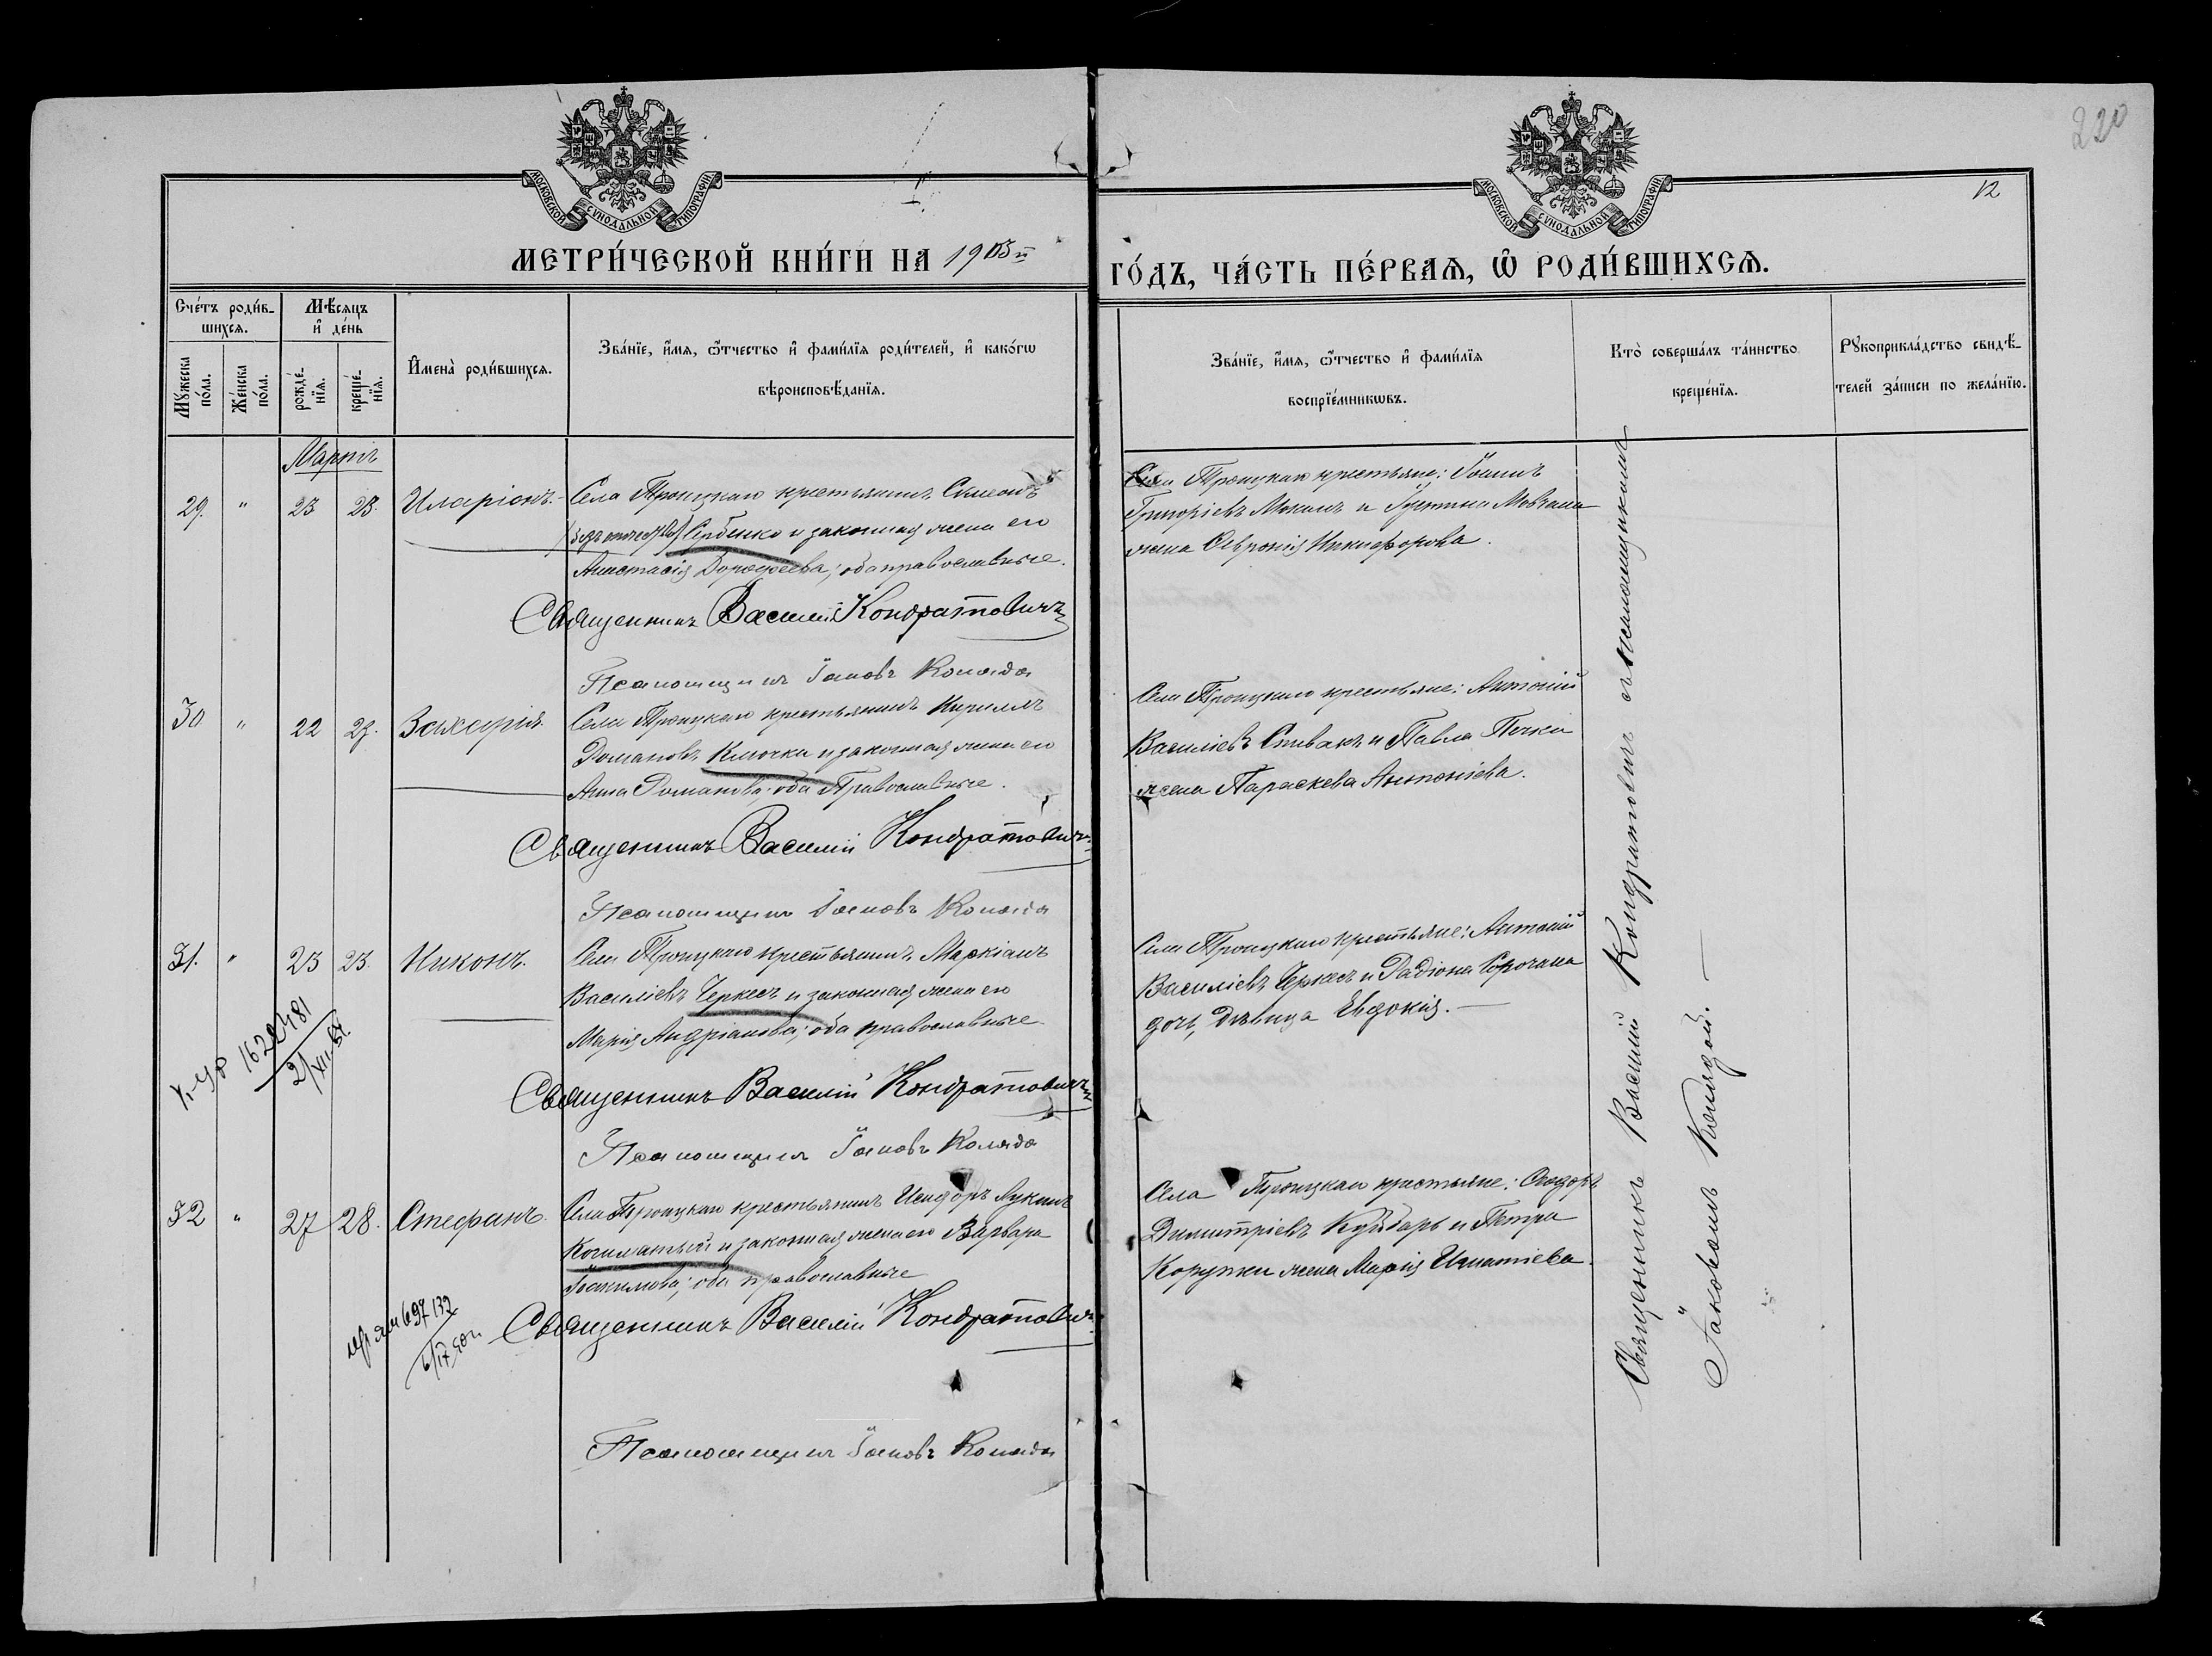 220
12
МОСКОВСКОЙ СѴНОДАЛЬНОЙ ТИПОГРАФІИ
МОСКОВСКОЙ СѴНОДАЛЬНОЙ ТИПОГРАФІИ
МЕТРИ́ЧЕСКОЙ КНИ́ГИ НА 1903й
ГО́ДЪ, ЧА́СТЬ ПЕ́РВАЯ, Ѡ҆ РОДИ́ВШИХСЯ.
Сче́тъ роди́в-
шихся.
Мѣ́сяцъ
и҆ де́нь
Мꙋ́жеска
по́ла.
Же́нска
по́ла.
рожде́-
нїя.
креще́-
нїя.
И҆мена̀ роди́вшихся.
Зва́нїе, и҆́мя, ѻ҆́тчество и҆ фами́лїя роди́телей, и҆ како́гѡ
вѣроисповѣ́данїя.
Зва́нїе, и҆́мя, ѻ҆́тчество и҆ фами́лїя
воспрїе́мникѡвъ.
Кто̀ соверша́лъ та́инство
креще́нїя.
Рꙋкоприкла́дство свидѣ́-
телей за́писи по жела́нїю.
Мартъ
29. " 23 23. Иларіонъ.
Села Троицкаго крестьянинъ Симеонъ
/безъ отчества/ Сербенко и законная жена его
Анастасія Дороѳеева; оба православные.
Священникъ Василій Кондратовичъ
Псаломщикъ Іаковъ Коляда
Села Троицкаго крестьяне: Іоаннъ
Григоріевъ Мокинъ и Іустина Мовчана
жена Ѳевронія Никифорова.
30 " 22 23. Захарія.
Села Троицкаго крестьянинъ Кириллъ
Романовъ Клочка и законная жена его
Анна Романова; оба Православные.
Священникъ Василій Кондратовичъ
Псаломщикъ Іаковъ Коляда
Села Троицкаго крестьяне: Антоній
Василіевъ Спивакъ и Павла Печки
жена Параскева Антоніева.
31. " 23 23. Никонъ.
Села Троицкаго крестьянинъ Маркіанъ
Василіевъ Черкесъ и законная жена его
Марія Андріанова; оба православные
Священникъ Василій Кондратовичъ
Псаломщикъ Іаковъ Коляда
Села Троицкаго крестьяне: Антоній
Василіевъ Черкесъ и Радіона Сорочана
дочь, дѣвица Евдокія.
1622481
21/XII-51.
32 " 27 28. Стефанъ.
Села Троицкаго крестьянинъ Исидоръ Лукинъ
Космлатый и законная жена его Варвара
Іоакимова; оба православные
Священникъ Василій Кондратовичъ
Псаломщикъ Іаковъ Коляда
Села Троицкаго крестьяне: Ѳеодоръ
Димитріевъ Куйбарь и Петра
Коружки жена Марія Игнатіева.
697132
Священникъ Василій Кондратовичъ съ псаломщикомъ
Іаковомъ Колядой.